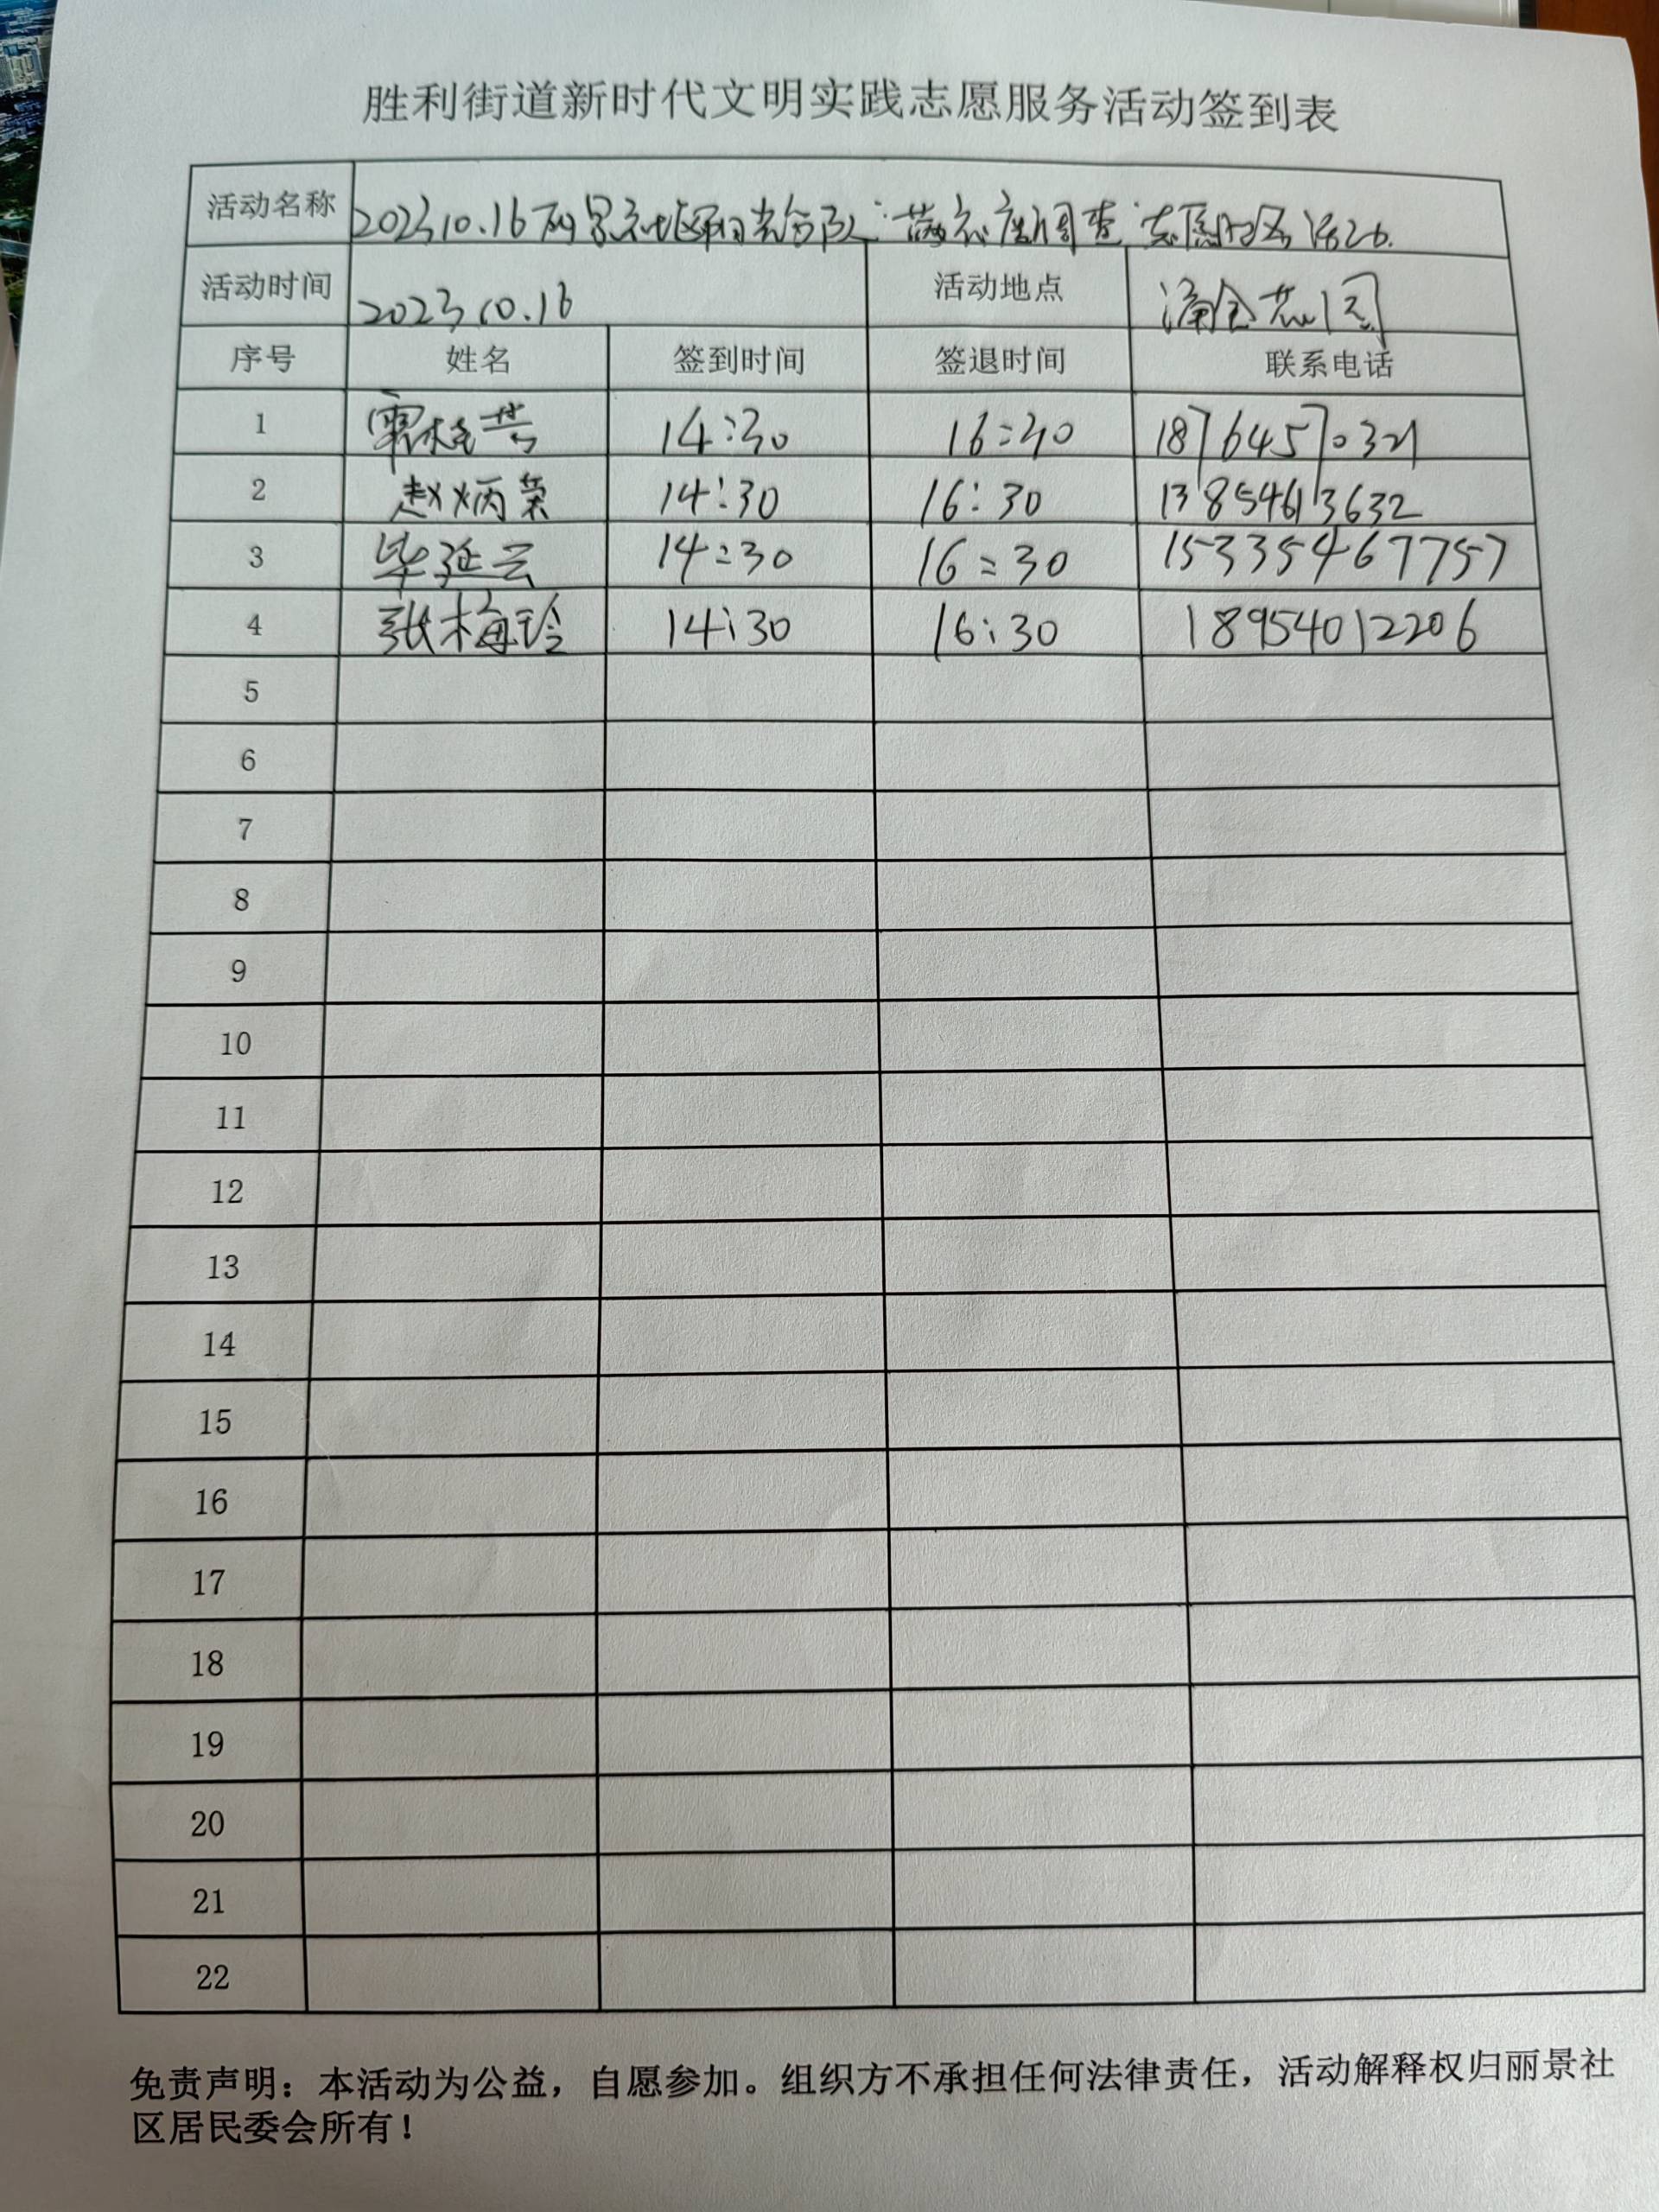 胜利街道新时代文明实践志愿服务活动签到表
活动名称 2023.10.16 社区阳光 调查 志愿服务活动.
活动时间 2023.10.16 活动地点 涌金花园
序号 姓名 签到时间 签退时间 联系电话
1 14:30 16:30 18764570321
2 赵炳荣 14:30 16:30 13854613632
3 毕延云 14:30 16:30 15335467757
4 张梅玲 14:30 16:30 18954012206
5
6
7
8
9
10
11
12
13
14
15
16
17
18
19
20
21
22
免责声明：本活动为公益，自愿参加。组织方不承担任何法律责任，活动解释权归丽景社
区居民委会所有！